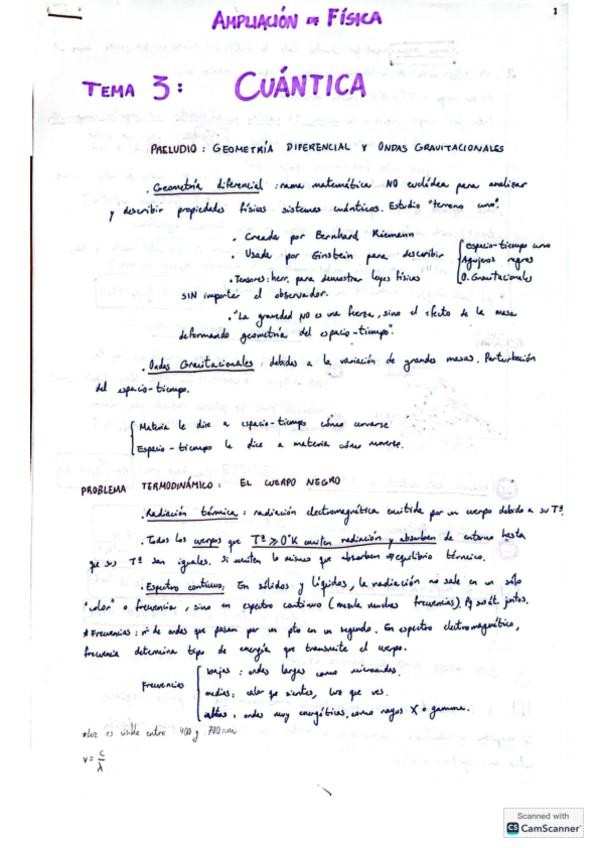 AMPLIACIÓN DE FÍSICA
1
TEMA 3: CUÁNTICA
PRELUDIO: GEOMETRÍA DIFERENCIAL Y ONDAS GRAVITACIONALES
· Geometría diferencial: rama matemática NO euclídea para analizar
y describir propiedades físicas sistemas cuánticos. Estudio "terreno curvo".
· Creada por Bernhard Riemann
· Usada por Einstein para describir { espacio-tiempo curvo
Agujeros negros
O. Gravitacionales
· Tensores: herr. para demostrar leyes físicas
SIN importar el observador.
· "La gravedad NO es una fuerza, sino el efecto de la masa
deformando geometría del espacio-tiempo".
· Ondas Gravitacionales: debidas a la variación de grandes masas. Perturbación
del espacio-tiempo.
{ Materia le dice a espacio-tiempo cómo curvarse
Espacio-tiempo le dice a materia cómo moverse.
PROBLEMA TERMODINÁMICO: EL CUERPO NEGRO
· Radiación térmica: radiación electromagnética emitida por un cuerpo debido a su Tª.
· Todos los cuerpos que Tª ≥ 0°K emiten radiación y absorben de entorno hasta
que sus Tª son iguales. Si emiten lo mismo que absorben → equilibrio térmico.
· Espectro continuo: En sólidos y líquidos, la radiación no sale en un sólo
"color" o frecuencia, sino en espectro continuo (mezcla muchas frecuencias). Pq juntos.
* Frecuencias: nº de ondas que pasan por un pto en un segundo. En espectro electromagnético,
frecuencia determina tipo de energía que transmite el cuerpo.
Frecuencias { bajas: ondas largas como microondas.
medias: calor que sientes, luz que ves.
altas: ondas muy energéticas, como rayos X o gamma.
*luz es visible entre 400 y 700 nm
ν = c/λ
Scanned with
CS CamScanner